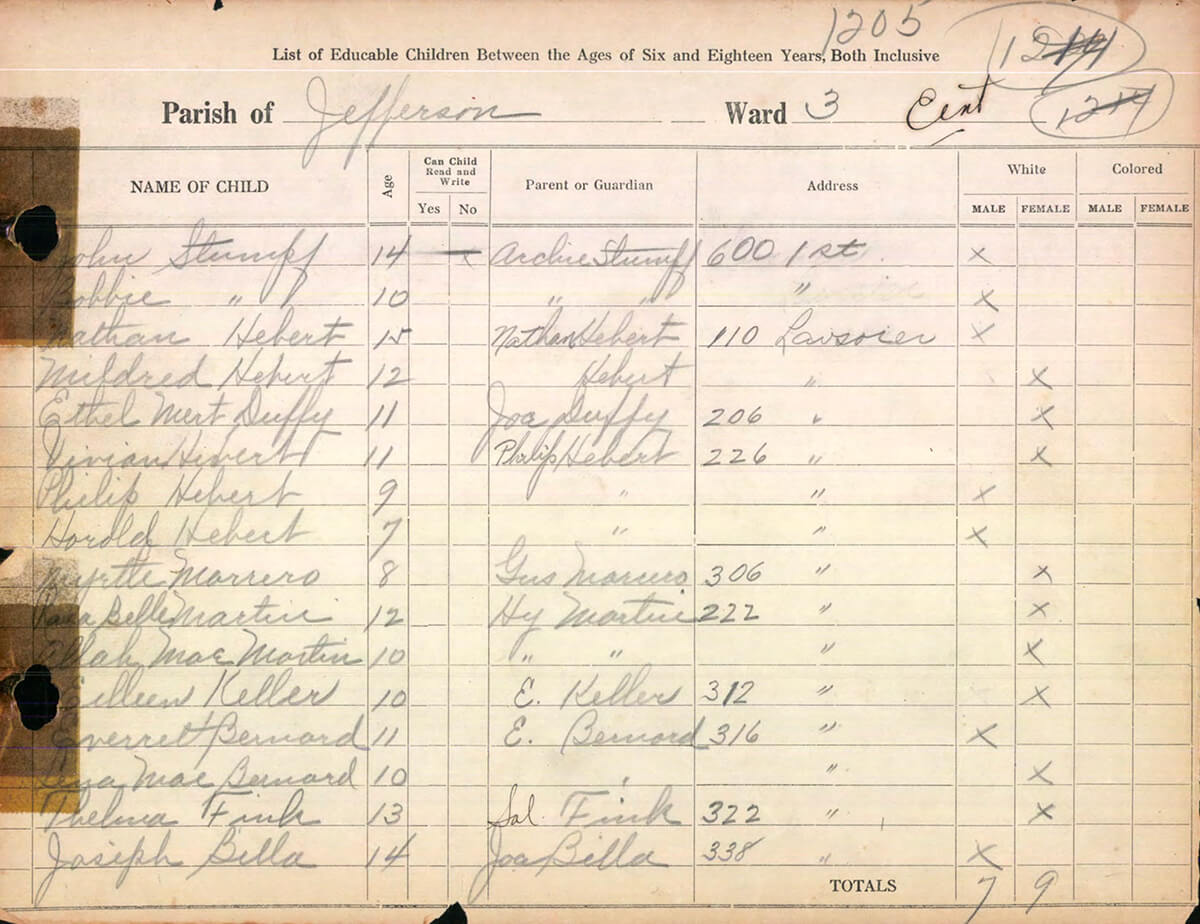 1205
List of Educable Children Between the Ages of Six and Eighteen Years, Both Inclusive
Parish of Jefferson Ward 3 Cent
NAME OF CHILD Age Can Child Read and Write Yes No Parent or Guardian Address White MALE FEMALE Colored MALE FEMALE
John Stumpf 14 x Archie Stumpf 600 1st x
Bobbie " 10 " " " x
Nathan Hebert 15 Nathan Hebert 110 x
Mildred Hebert 12 Hebert " x
Ethel Mert Duffy 11 Joe Duffy 206 " x
Vivian Hivert 11 Philip Hebert 226 " x
Philip Hebert 9 " " x
Horold Hebert 7 " " x
Myrtle Marrero 8 Gus Marrero 306 " x
Belle Martin 12 Hy Martin 222 " x
Mae Martin 10 " " " x
Eilleen Keller 10 E. Keller 312 " x
Everret Bernard 11 E. Bernard 316 " x
Lena Mae Bernard 10 " " x
Thelma Fink 13 Sol. Fink 322 " x
Joseph Billa 14 Joe Billa 338 " x
TOTALS 7 9